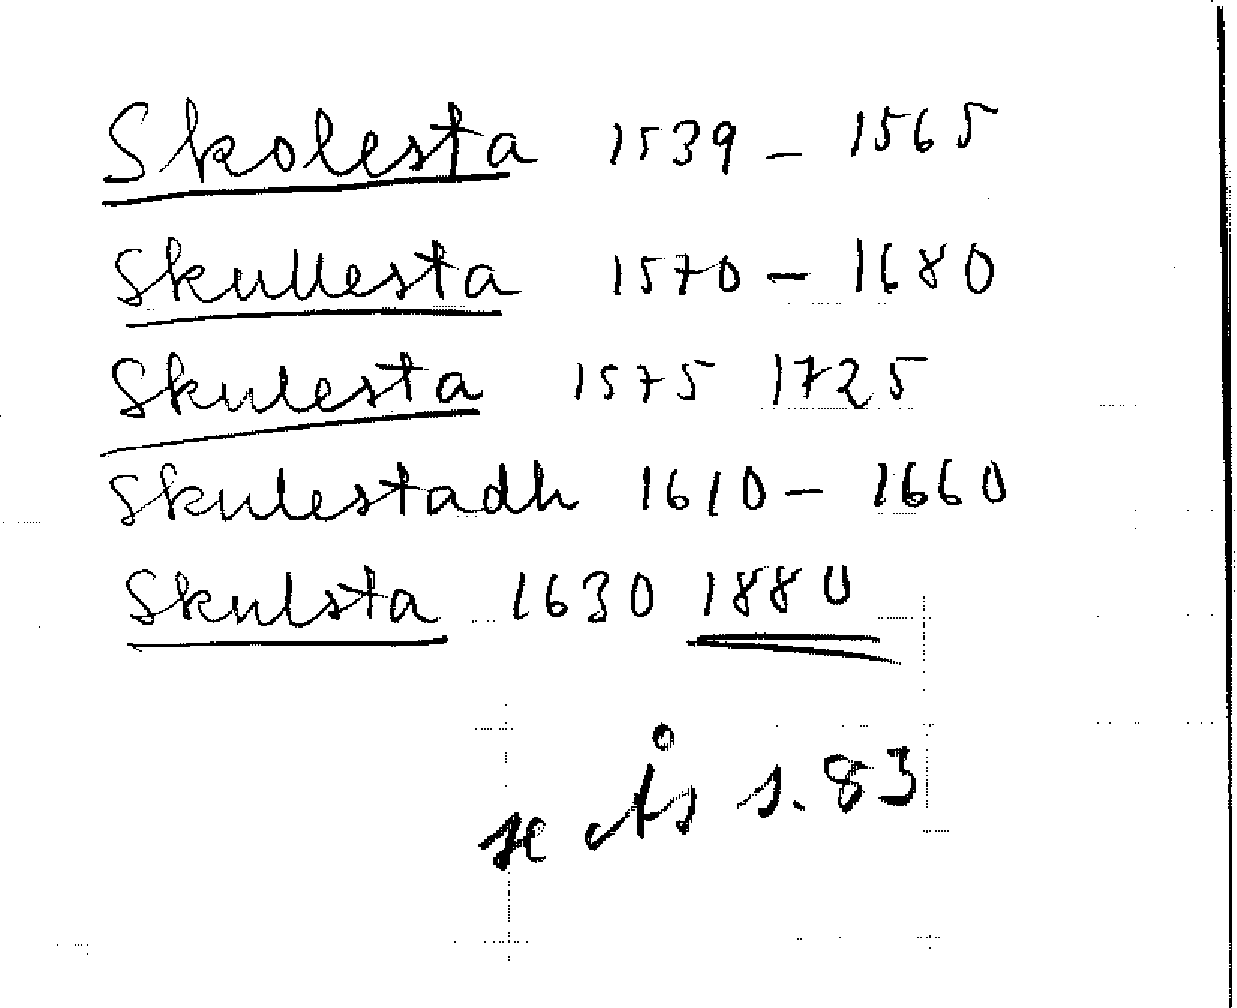 Skolesta 1539 – 1565
Skullesta 1570 – 1680
Skulesta 1575 1725
Skulestadh 1610 – 1660
Skulsta 1630 1880
se Ås s. 83